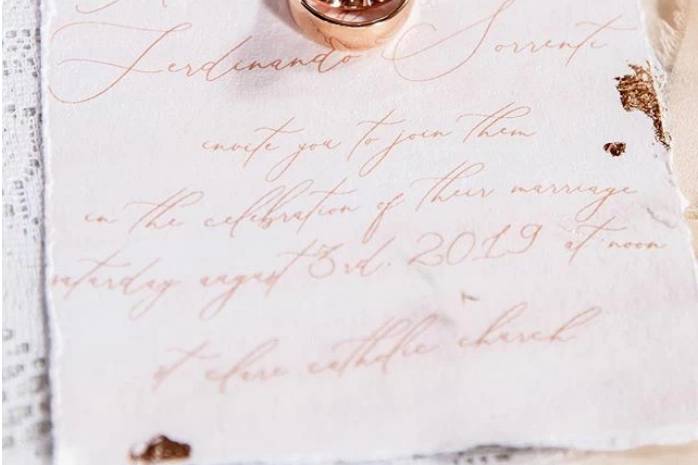 Ferdinando Sorrenti
invite you to join them
in the celebration of their marriage
saturday august 3rd. 2019 at noon
st clare catholic church